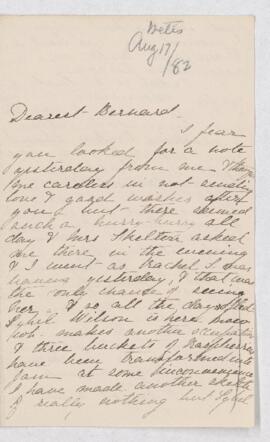 Betis
Aug 17/
/82
Dearest Bernard.
I fear
you looked for a note
yesterday from me &
me careless in not sending
love & good wishes after
you but there seemed
such a hurry-hurry all
day & Mrs Skelton asked
me there in the evening
& I went as Rachel I was
yesterday & that was
the only chance of seeing
her. & so all the day
Wilson is here now
makes another occupation
& three buckets of raspberries
have been transformed into
jam at some inconvenience
I have made another sketch
& really nothing but